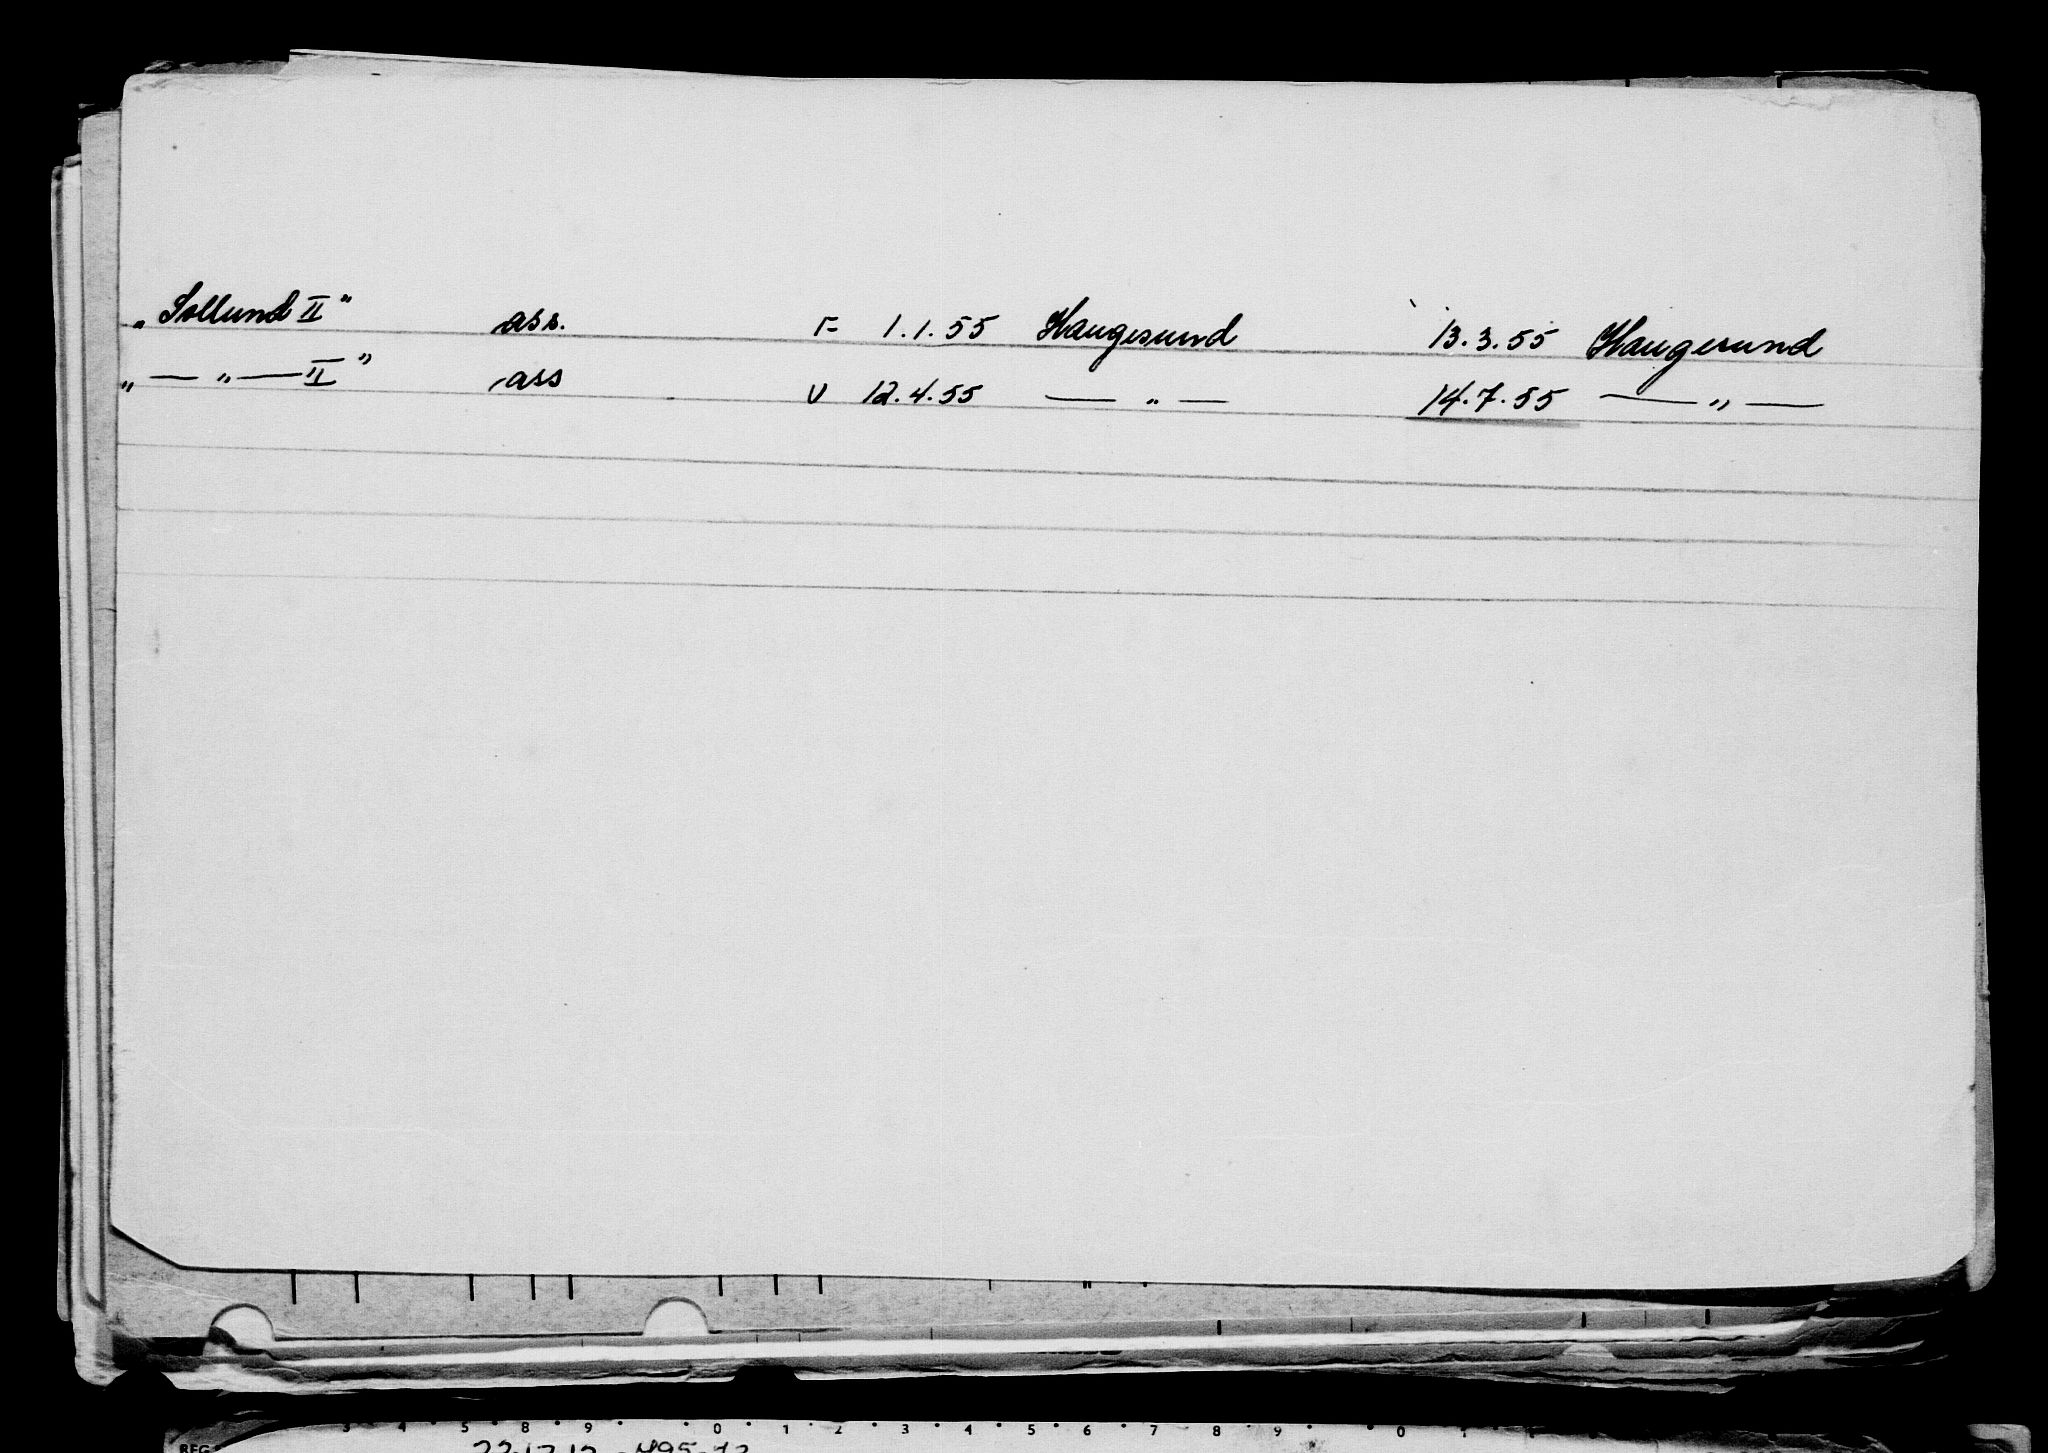 „Sollund II" ass. F 1.1.55 Haugesund 13.3.55 Haugesund
„—„—II" ass U 12.4.55 —„— 14.7.55 —„—
3 4 5 8 9 0 1 2 3 4 5 6 7 8 9 0 1
REG